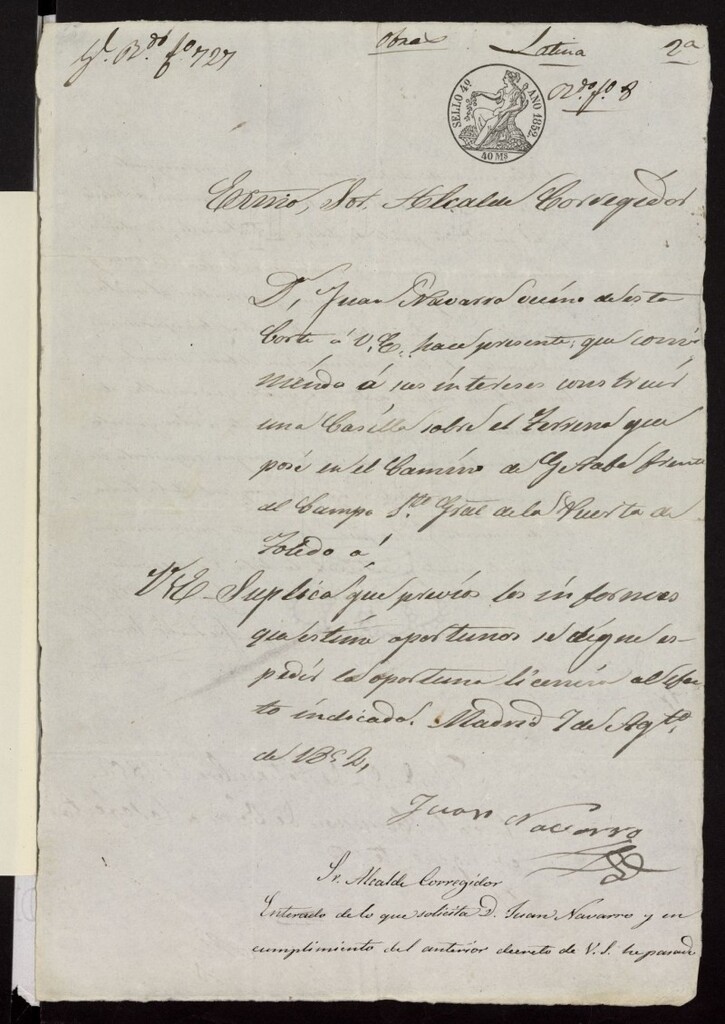 Gl. Rdo fo 727
Obras
Latina
2a
Rdo fo 8
SELLO 4º AÑO 1852.
40 Ms
Exmo, Sor. Alcalde Corregidor
D, Juan Navarro vecino de esta
Corte á V.E. hace presente; que convi-
niéndo á sus intereses construir
una Casilla sobre el Terreno que
posé en el Camino de Getafe frente
al Campo Sto. Gral de la Puerta de
Toledo a
V.E. Suplica que previos los informes
que estime oportunos se digne es-
pedir la oportuna licencia al efec-
to indicado. Madrid 7 de Agto.
de 1852,
Juan Navarro
Sr. Alcalde Corregidor
Enterado de lo que solicita D. Juan Navarro y en
cumplimiento del anterior decreto de V.S. he pasado